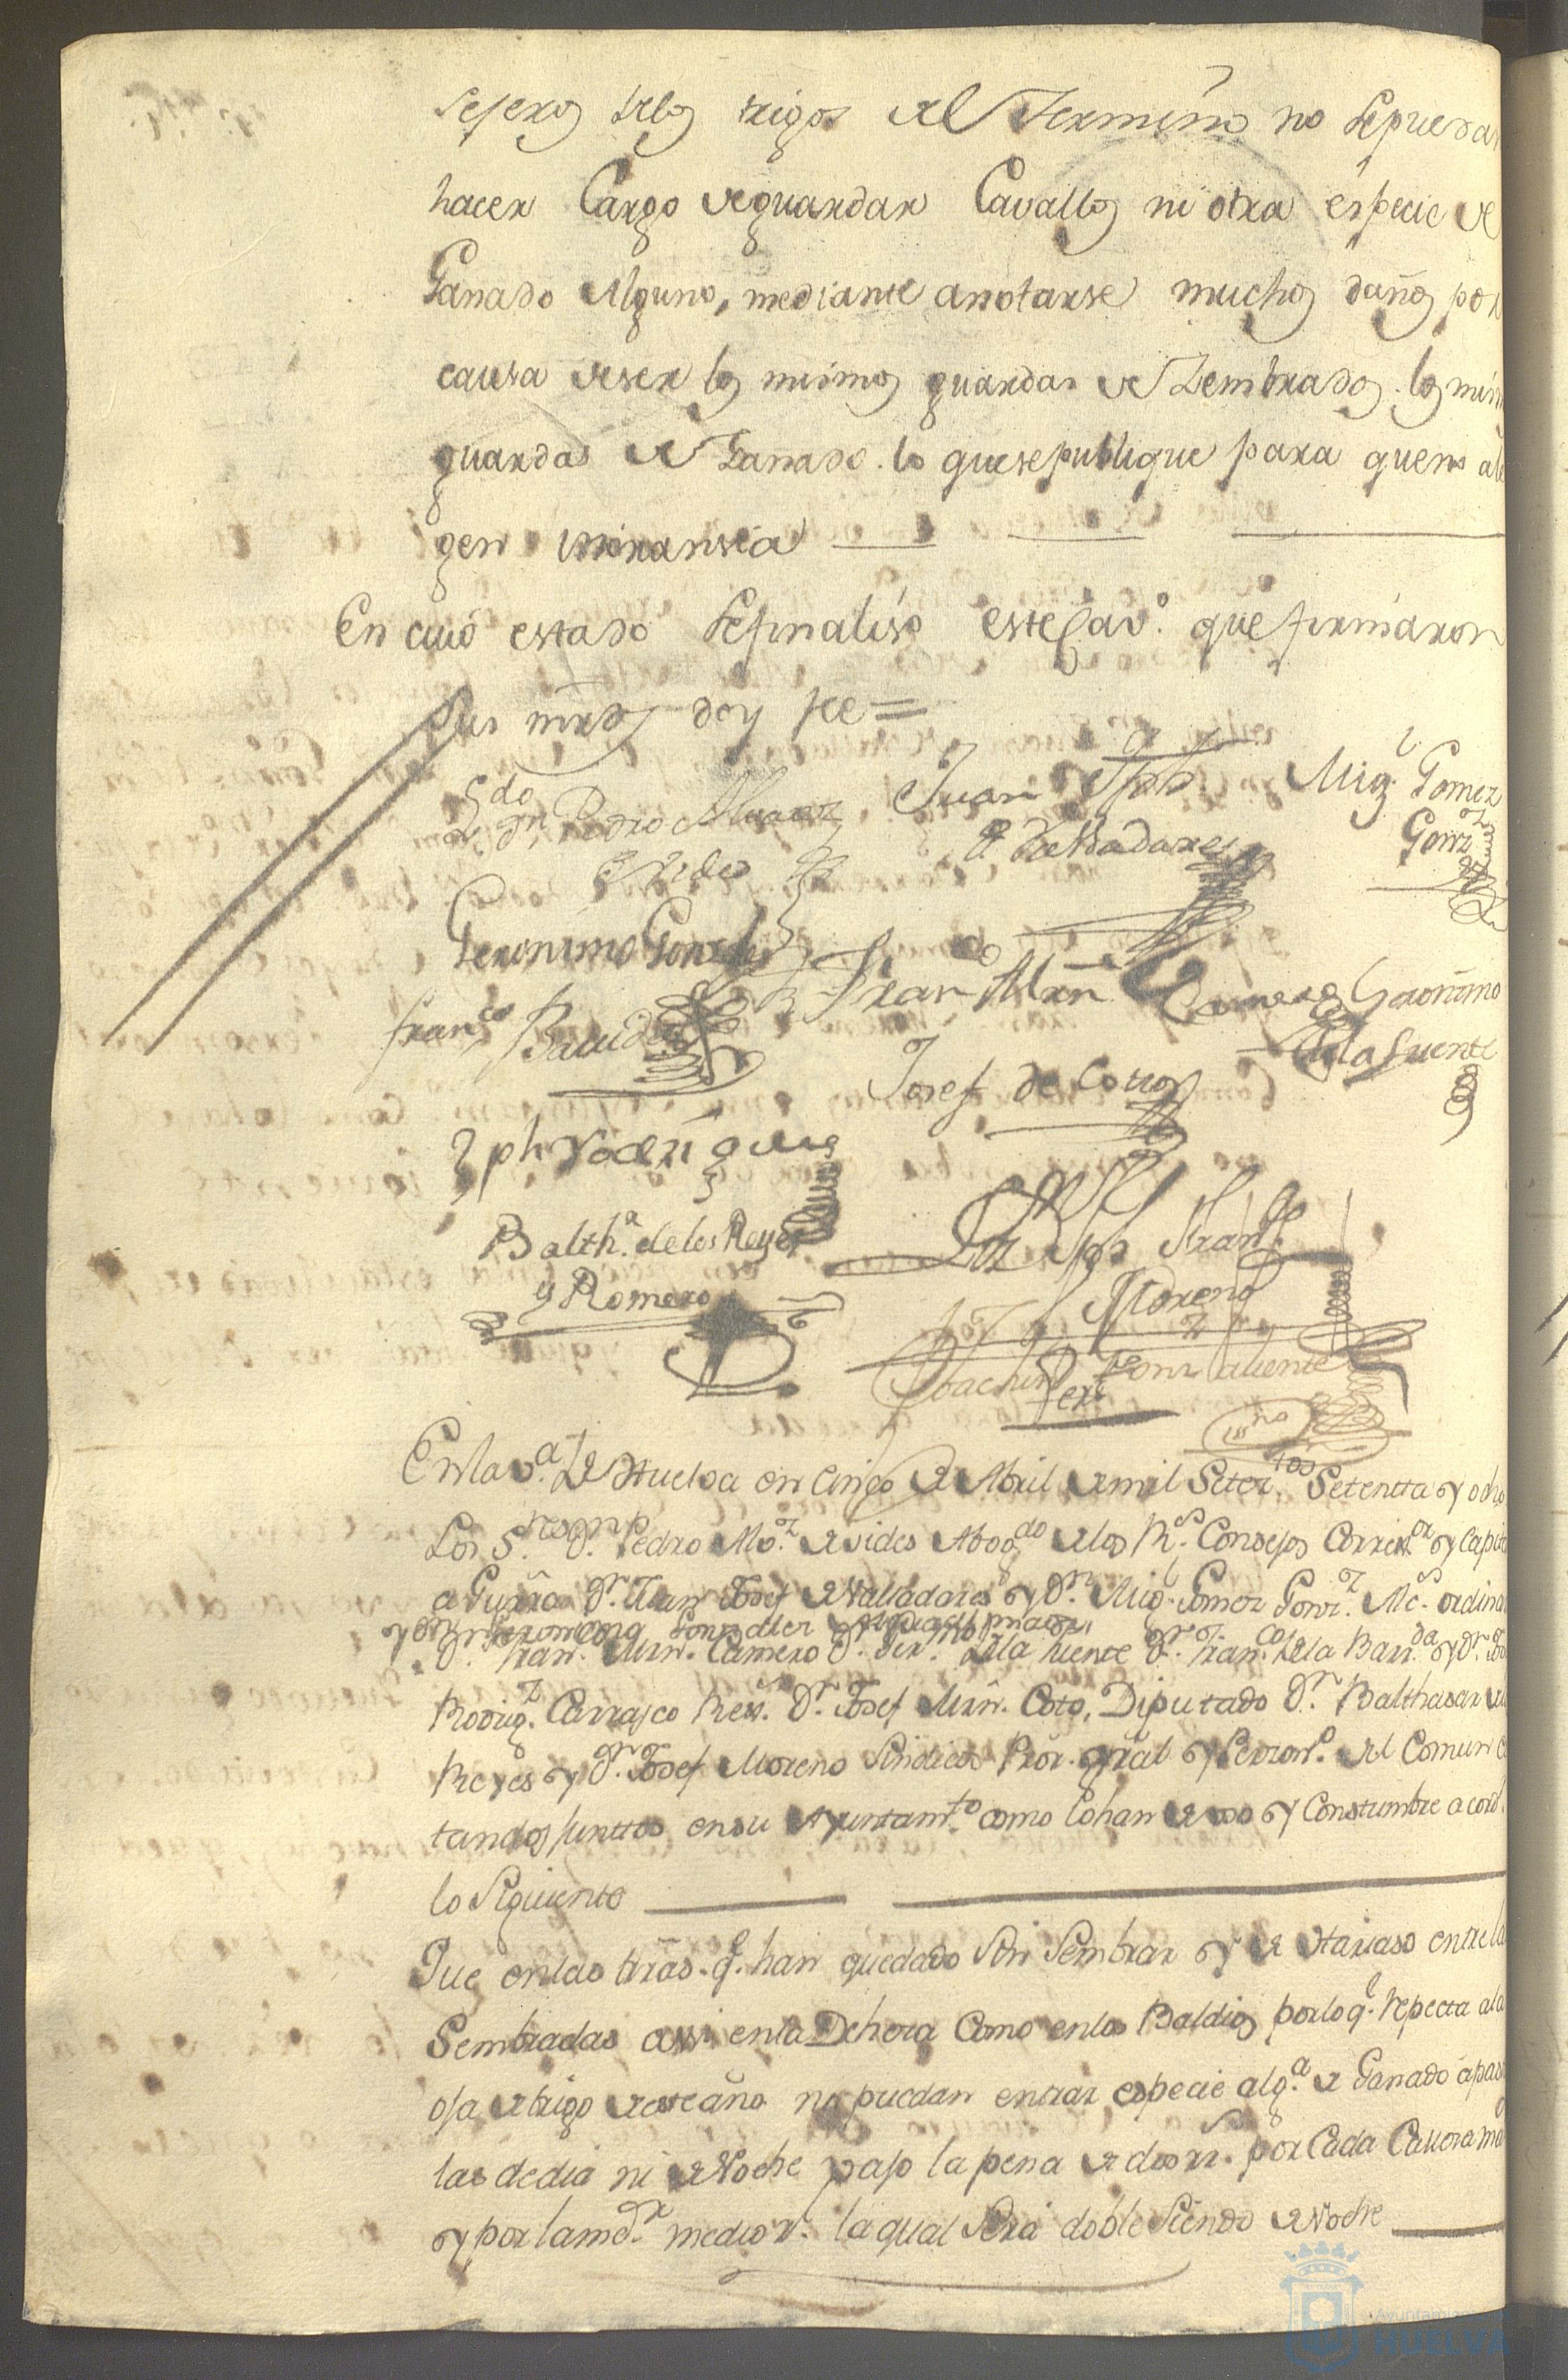 seseros delos trigos del Termino no Sepuedan
hacer Cargo deguardar Cavallos ni otra especie de
Ganado Alguno, mediante anotarse muchos daños por
causa deser los mismos guardas de Sembrados. los mism
guardas de Ganado. lo quesepublique para queno ale
gen
En cuio estado Sefinalisó este Cav.º que firmaron
Sus mrds doy fee =
L.do Dn Pedro Alvarez
Evides
Juan Jph
d Valladares
Mig.l Gomez
Gonz.z
Geronimo Gonzalez
Fran.co Mrn Camero
Geronimo
dela fuente
fran.co Barreda
Josef de Coto
Jph rodrigues
Balth.r de los Reyes
y Romero
Jph Fran.co
Moreno
Joachin Perez
En la v.a de Huelva en Cinco de Abril demil Setez.tos Setentta y ocho
Los S.res Dn. Pedro Alv.z de vides Abog.do de los R.s Consejos Correx.or y Capitn
a Guerra Dn. Juan Josef de Valladares y Dn. Mig.l Gomez Gonz.z Alc.s ordina
y Dn. Geronimo Gonzalez
Dn. Fran.co Mrn. Camero Dn. Ger.mo Dela Fuente Dn. Fran.co dela Barr.da y Dn. Jo
Rodrig.z Carrasco Rex.s Dn. Josef Mrn. Coto, Diputado Dn. Balthasar de
Reyes y Dn. Josef Moreno Sindicos Pror. gral y Person.o del Comun e
tandos Junttos ensu Ayuntam.to como lohan de uso y Constumbre acord.
lo Siguiente
Que enlas trras. q.e han quedado Sin Sembrar y de Hariaso entrela
Sembradas assi enla Dehesa Como enlos Baldios porlo q.e repecta ala
oja de trigo deeste año no puedan entrar especie alg.a de Ganado apas
las dedia ni de Noche vajo la pena de dos rr.s por Cada Cavesa ma
y por lamen.r medio r. la qual Será doble Siendo de Noche
Ayuntam
HUELVA